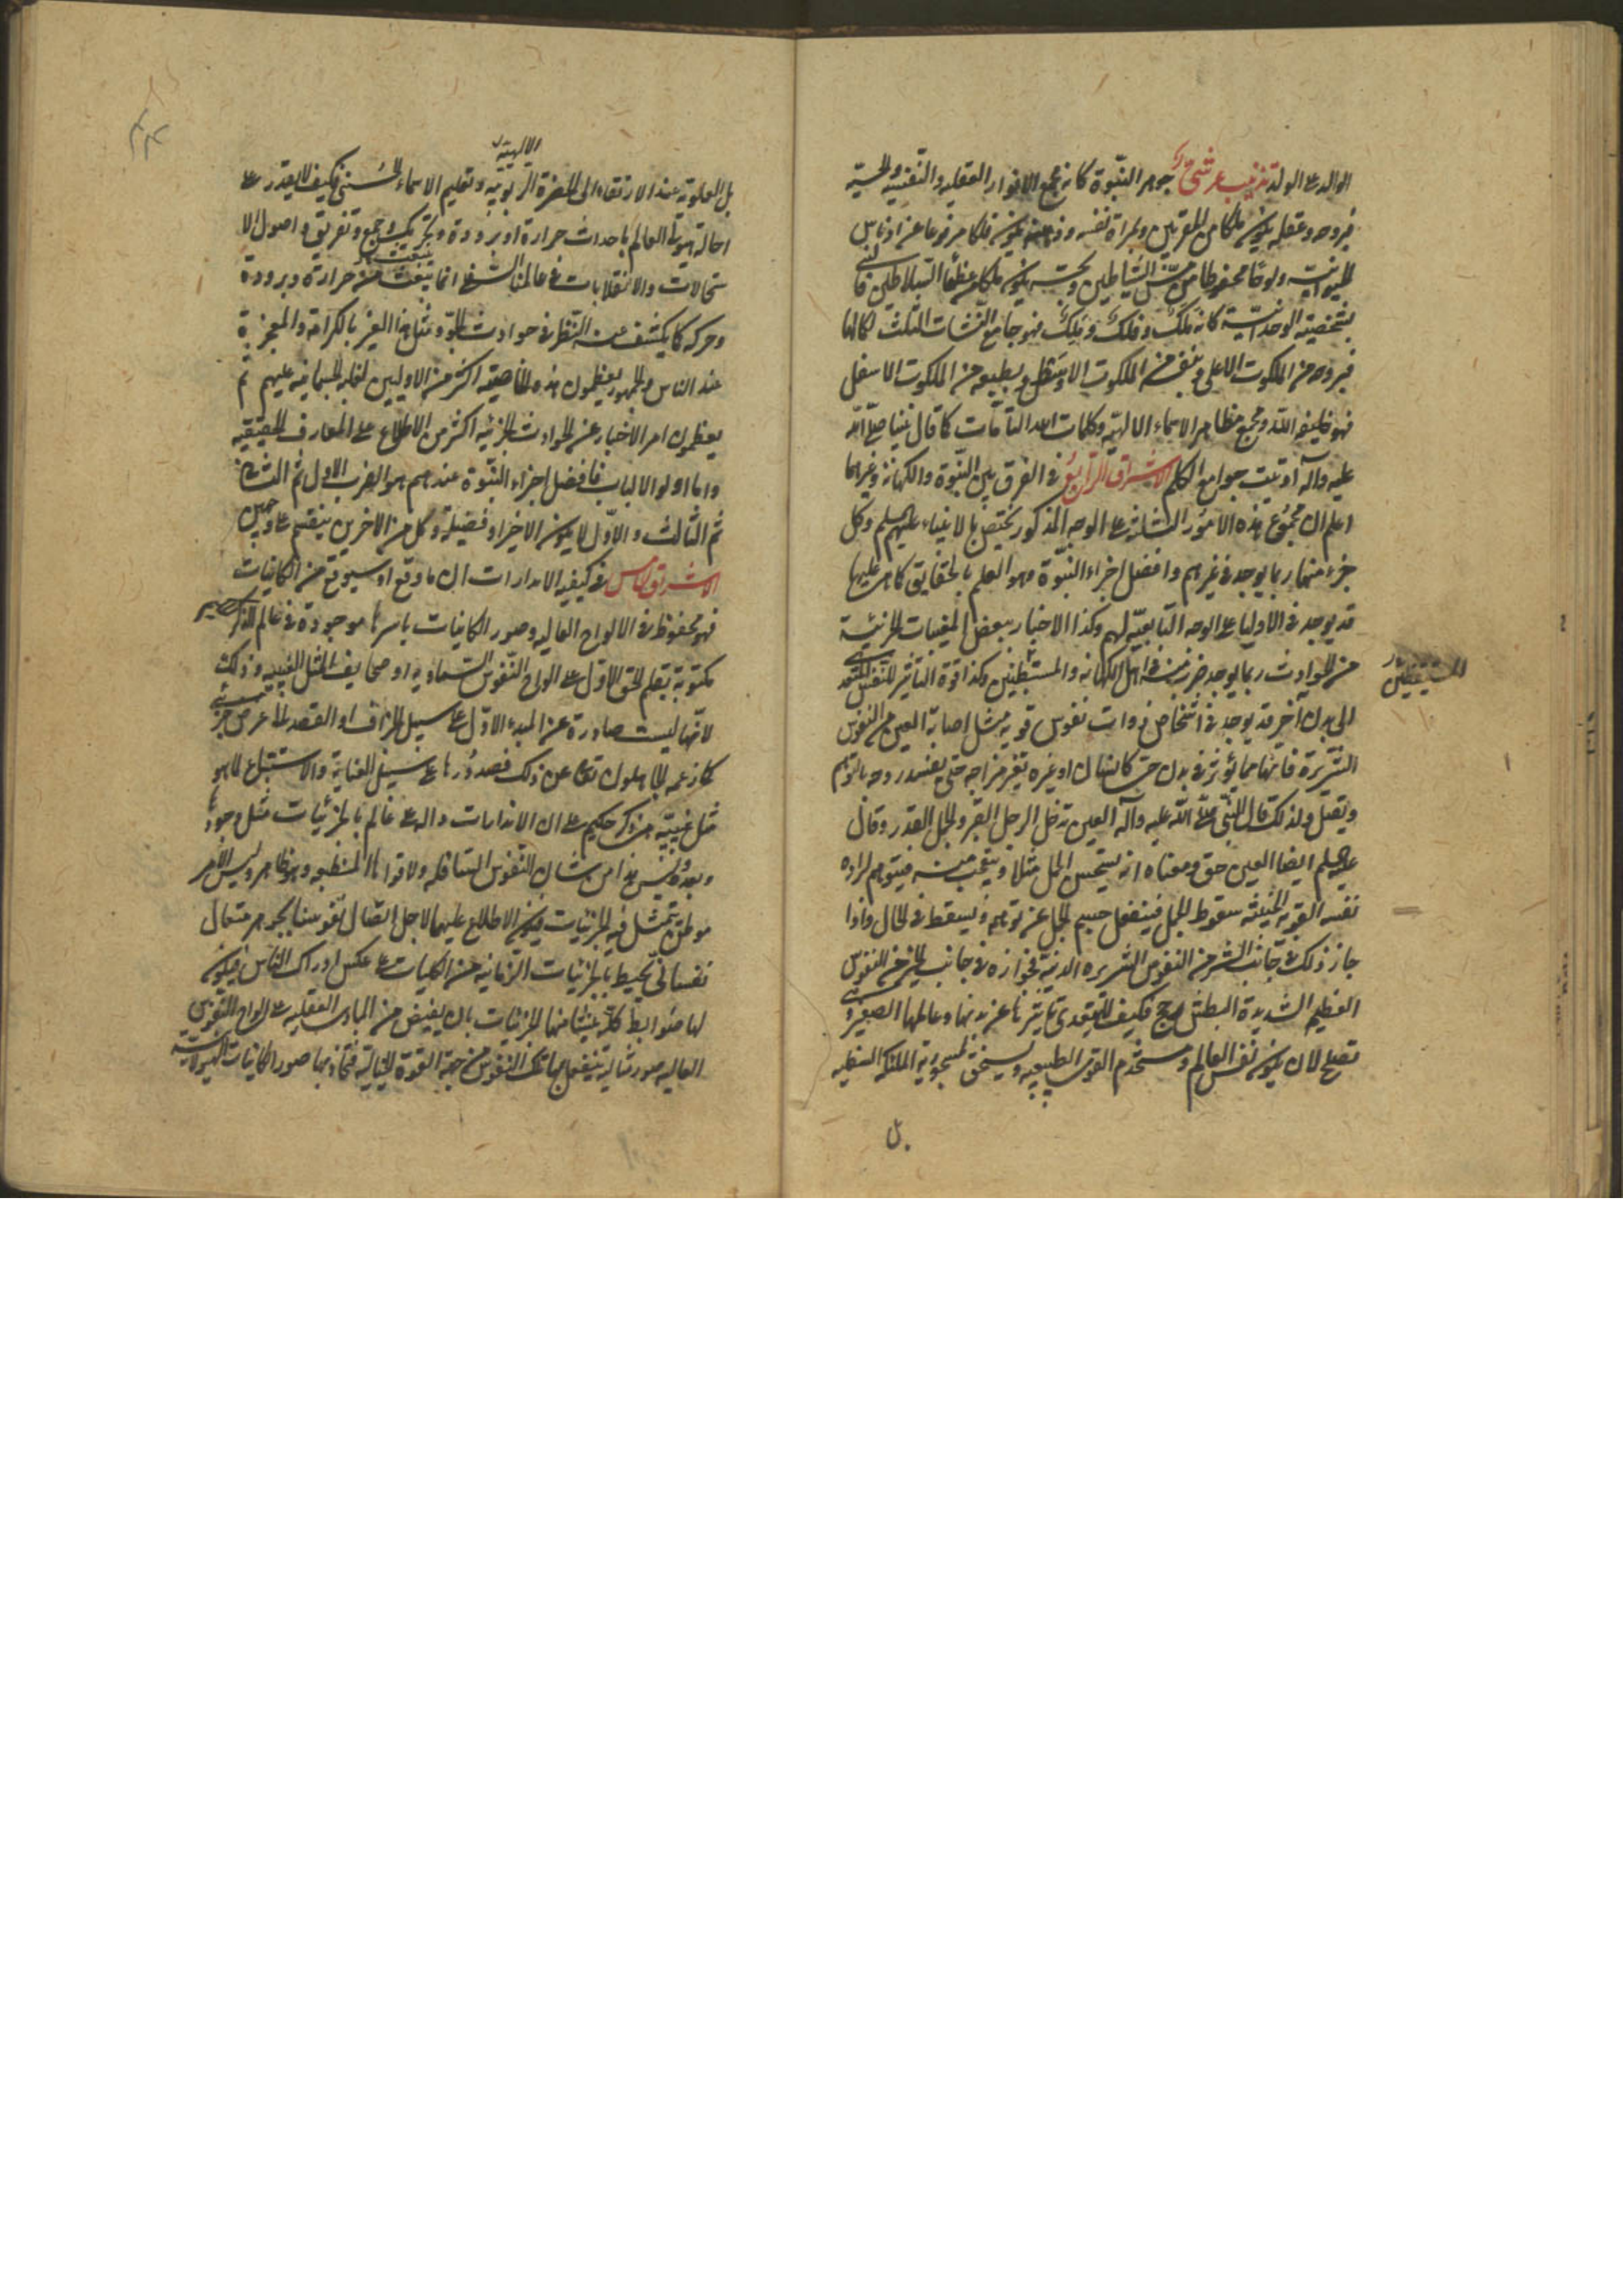 الوالد على الولد تذنيب عرشي جوهر النبوة كانه مجمع الانوار العقليه والنفسيه والحسية
فبروحه وعقله يكون ملكا من المقربين وبمراة نفسه وذهنه يكون فلكا مرفوعا عن ادناس
الحيوانيه ولوحا محفوظا من مس الشياطين وبحسه يكون ملكا من عظماء السلاطين فالنبي
بشخصيته الوحدانية كانه ملك وفلك وملك فهو جامع النشات الثلث بكمالها
فبروحه من الملكوت الاعلى وبنفسه من الملكوت الاوسط وبطبعه من الملكوت الاسفل
فهو خليفة الله ومجمع مظاهر الاسماء الالهيه وكلمات الله التامات كما قال نبينا صلى الله
عليه وآله اوتيت جوامع الكلم الاشراق الرابع في الفرق بين النبوة والكهانة وغيرهما
اعلم ان مجموع هذه الامور الثلثة على الوجه المذكور يختص بالانبياء عليهم السلم وكل
جزء منها ربما يوجد في غيرهم وافضل اجزاء النبوة وهو العلم بالحقايق كما هي عليها
قد يوجد في الاولياء على الوجه التابعيه لهم وكذا الاخبار ببعض المغيبات الجزئية
من الحوادث ربما يوجد ضرب منه في اهل الكهانه والمستنطقين وكذا قوة التاثير للنفس المتعدي
المستيقظين
الى بدن آخر قد يوجد في اشخاص ذوات نفوس قويه مثل اصابة العين من النفوس
الشريرة فانها مما يؤثر في بدن حي كانسان او غيره بتغير مزاجه حتى يفسد روحه بالتوهم
ويقتل ولذلك قال النبي صلى الله عليه وآله العين تدخل الرجل القبر والجمل القدر وقال
عليه السلم ايضا العين حق ومعناه انه يستحسن الجمل مثلا ويتعجب منه فيتوهم لرداءه
نفسه القويه الخبيثه سقوط الجمل فينفعل جسم الجمل عن توهمه ويسقط في الحال واذا
جاز ذلك في جانب الشر من النفوس الشريره الدنية فجوازه في جانب الخير من النفوس
العظيم الشديدة البطش ارجح فكيف لا يتعدى تاثيرها عن بدنها وعالمها الصغير وهي
تصلح لان يكون نفس العالم ومستخدم القوى الطبيعيه ويستحق لمسجودية الملئكة السفليه
بل
بل العلوية عند الارتقاء الى الحضرة الربوبية وتعليم الاسماء الحسنى فكيف لا يقدر على
الالهية
احالة هيولى العالم باحداث حرارة او برودة وتحريك وجمع وتفريق واصول الا
ستحالات والانقلابات في عالمنا الشخصي انما ينبعث من حرارة وبرودة
وحركه كما يكشف عنه النظر في حوادث الجو ومثل هذا يعبر بالكرامة والمعجزة
عند الناس والجمهور يعظمون هذه الخاصيه اكثر من الاوليين لغلبه الجسمانيه عليهم ثم
يعظمون امر الاخبار عن الحوادث الجزئيه اكثر من الاطلاع على المعارف الحقيقيه
واما اولو الالباب فافضل اجزاء النبوة عندهم هو الضرب الاول ثم الثاني
ثم الثالث والاول لا يكون الا خيرا وفضيلة وكل من الاخرين ينقسم على وجهين
الاشراق الخامس في كيفيه الانذارات ان ما وقع او سيوقع من الكاينات
فهو محفوظ في الالواح العاليه وصور الكاينات باسرها موجودة في عالم الذكر
مكتوبة بقلم الحق الاول على الواح النفوس السماويه او صحايف المثل الغيبيه وذلك
لانها ليست صادرة عن المبدء الاول على سبيل الجزاف او القصد لغرض جزئي
كما زعمه الجاهلون تعالى عن ذلك فصدورها على سبيل العناية والاستتباع لاهو
مثل غيبيه من ذكر حكيم على ان الانذارات داله على عالم بالجزئيات قبل وجودها
وبعده وليس هذا من شان النفوس السافله ولا قواها المنطبعه وهو ظاهر وليس الامر
موطن يتمثل فيه الجزئيات فيكون الاطلاع عليها لاجل اتصال نفوسنا بجوهر متعال
نفساني يحيط بالجزئيات الزمانيه من الكليات على عكس ادراك الناس فيكون
لها ضوابط كليه ينشا منها الجزئيات بان يفيض من المبادى العقليه على الواح النفوس
العاليه صور مثالية ينفعل بها تلك النفوس من جهة القوة الخيالية فتحاذ بها صور الكاينات الهيولانية